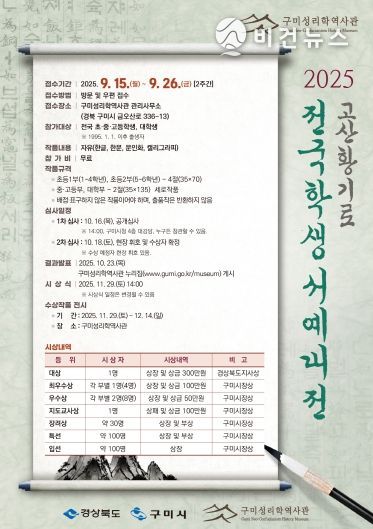 구미성리학역사관
Gumi Neo-Confucianism History Museum
비건뉴스
2025
고산황기로
전국학생서예대전
접수기간 | 2025. 9. 15.(월) ~ 9. 26.(금) [2주간]
접수방법 | 방문 및 우편 접수
접수장소 | 구미성리학역사관 관리사무소
(경북 구미시 금오산로 336-13)
참가대상 | 전국 초·중·고등학생, 대학생
※ 1995. 1. 1. 이후 출생자
작품내용 | 자유(한글, 한문, 문인화, 캘리그라피)
참 가 비 | 무료
작품규격
초등1부(1~4학년), 초등2부(5~6학년) - 4절(35×70)
중·고등부, 대학부 - 2절(35×135) 세로작품
배접·표구하지 않은 작품이어야 하며, 출품작은 반환하지 않음
심사일정
1차 심사 : 10. 16.(목), 공개심사
※ 14:00, 구미시청 4층 대강당, 누구든 참관할 수 있음.
2차 심사 : 10. 18.(토), 현장 휘호 및 수상자 확정
※ 수상 예정자 현장 휘호 있음.
결과발표 | 2025. 10. 23.(목)
구미성리학역사관 누리집(www.gumi.go.kr/museum) 게시
시 상 식 | 2025. 11. 29.(토) 14:00
※ 시상식 일정은 변경될 수 있음
수상작품 전시
기 간 : 2025. 11. 29.(토) ~ 12. 14.(일)
장 소 : 구미성리학역사관
시상내역
등 위 시 상 자 시상내역 비 고
대상 1명 상장 및 상금 300만원 경상북도지사상
최우수상 각 부별 1명(4명) 상장 및 상금 100만원 구미시장상
우수상 각 부별 2명(8명) 상장 및 상금 50만원 구미시장상
지도교사상 1명 상패 및 상금 100만원 구미시장상
장려상 약 30명 상장 및 부상 구미시장상
특선 약 100명 상장 및 부상 구미시장상
입선 약 100명 상장 구미시장상
경상북도
구미시
구미성리학역사관
Gumi Neo-Confucianism History Museum